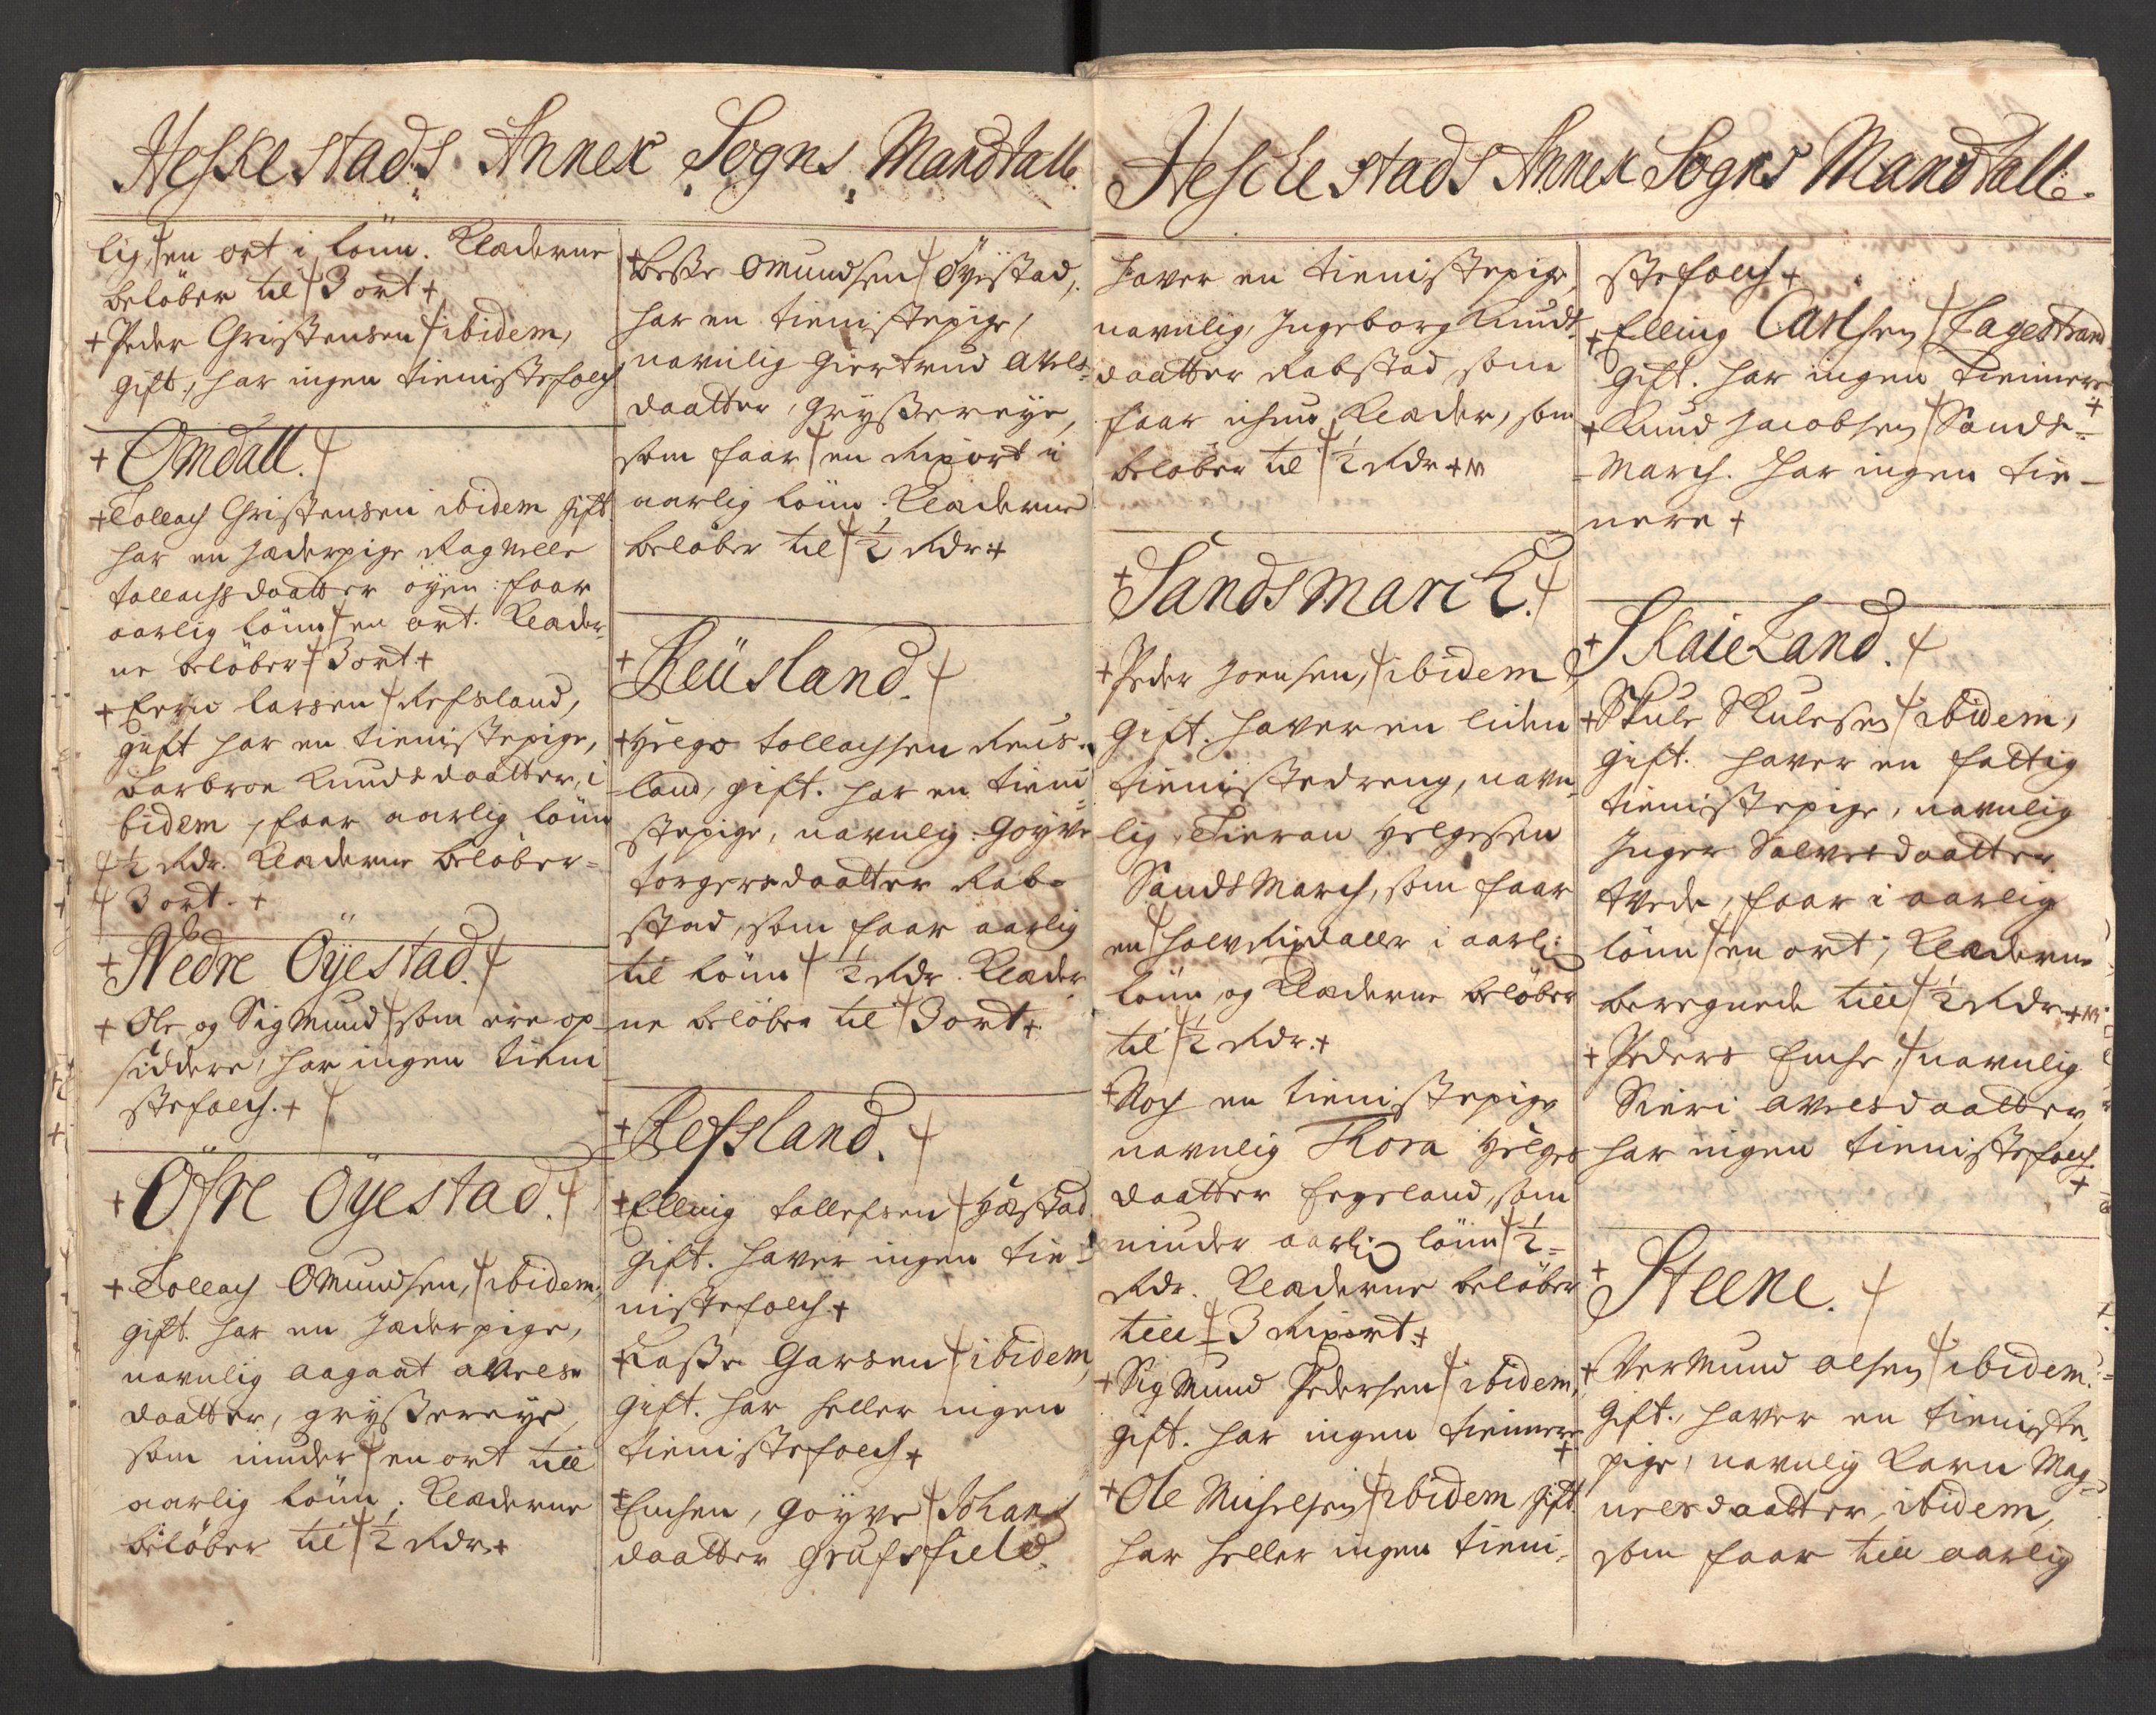 Heskestads Annex Sogns Mandtall.
lig, en ort i lönn. Klæderne
belöber til 3 ort +
+ Peder Christensen ibidem,
gift, har ingen tienistefolch
+ Omdall.
+ Tollach Christensen ibidem gift
har en Jæderpige Ragnelle
tollachsdaatter öyen: faar
aarlig lönn en ort. Klæder-
ne belöber 3 ort. +
+ Eeric Larsen Refsland,
gift har en tienistepige,
Barbroe Knudsdaatter, i
bidem, faar aarlig lönn
½ Rdr. Klæderne belöber=
3 ort. +
+ Nedre Öyestad.
+ Ole og Sigmund som ere op-
siddere, har ingen tieni
stefolch. +
+ Öfre Öyestad.
+ Tollach Omundsen, ibidem,
gift. har en Jæderpige,
navnlig Aagaat Avels-
daatter, gryssereye,
som niuder en ort till
aarlig lönn. Klæderne
belöber til ½ Rdr. +
+ Besse Omundsen Öyestad,
har en tienistepige,
navnlig Giertrud Avels-
daatter, gryssereye,
som faar en Rixort i
aarlig lönn. Klæderne
belöber til ½ Rdr. +
+ Reüsland.
+ Helge Tollachsen Reüs-
land, gift. har en tieni
stepige, navnlig: Goyve
torgersdaatter Rab-
stad, som faar aarlig
til lönn ½ Rdr. Klæder
ne belöber til 3 ort +
+ Refsland.
+ Elling Tollefsen Hæstad
gift. haver ingen tie-
nistefolch. +
+ Lasse Garsen ibidem,
gift. har heller ingen
tienistefolch +
+ Enchen, Goyve Johans
daatter Grufsfield.
Heschestads Annex Sogns Mandtall.
haver en tienistepige,
navnlig, Ingeborg Knuds-
daatter Rabstad, som
faar ichun Klæder, som
belöber til ½ Rdr. +
+ Sandsmarck.
+ Peder Joensen, ibidem
gift. haver en liden
tienistedreng, navn-
lig Tieran Helgesen
Sandsmarch, som faar
en halv Rixdaler i aarlig
lönn, og Klæderne belöber
til ½ Rdr. +
+ Noch en tienistepige
navnlig Thora Helges
daatter Eegeland, som
niuder aarlig lönn ½ =
Rdr. Klæderne belöber
till 3 Rixort. +
+ Sigmund Pedersen ibidem,
gift. har ingen tiennere
+
+ Ole Michelsen ibidem gift
har heller ingen tieni-
stefolch +
+ Elling Carlsen Fagestrand
gift. har ingen tiennere
+
+ Knud Jacobsen Sands=
march. har ingen tie-
nere +
+ Skaieland.
+ Skule Skulesen ibidem,
gift. haver en fattig
tienistepige, navnlig
Inger Salvesdaatter
tvede, faar i aarlig
lönn en ort, Klæderne
beregnede till ½ Rdr +
+ Peders Enche, navnlig
Sieri Avelsdaatter,
har ingen tienistefolch.
+
+ Steene.
+ Vermund Olsen ibidem.
gift., haver en tieniste-
pige, navnlig Karn Mag-
nelsdaatter, ibidem,
som faar till aarlig